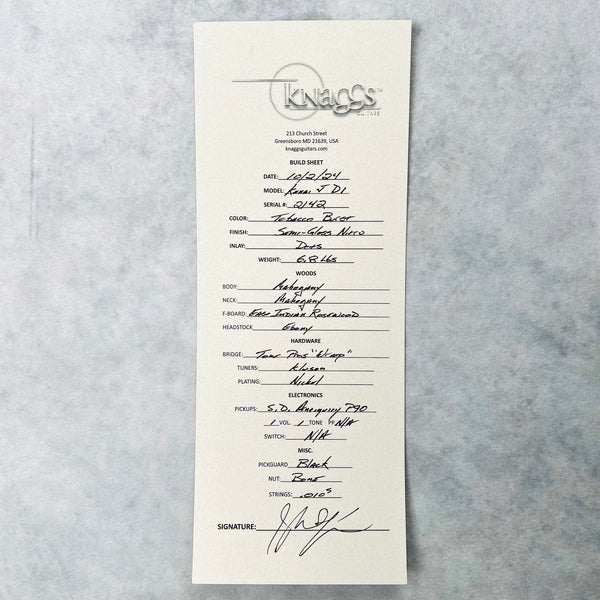 knaggs
GUITARS
213 Church Street
Greensboro MD 21639, USA
knaggsguitars.com
BUILD SHEET
DATE: 10/2/24
MODEL: Kenai J D1
SERIAL #: 2142
COLOR: Tobacco Burst
FINISH: Semi-Gloss Nitro
INLAY: Dots
WEIGHT: 6.8 lbs
WOODS
BODY: Mahogany
NECK: Mahogany
F-BOARD: East Indian Rosewood
HEADSTOCK Ebony
HARDWARE
BRIDGE: Tone Pros
TUNERS: Kluson
PLATING: Nickel
ELECTRONICS
PICKUPS: S.D. Antiquity P90
1 VOL. 1 TONE PP N/A
SWITCH: N/A
MISC.
PICKGUARD Black
NUT: Bone
STRINGS: .010s
SIGNATURE: